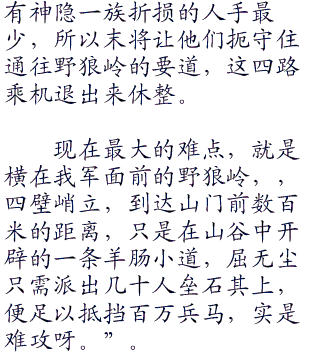 有神隐一族折损的人手最
少，所以末将让他们扼守住
通往野狼岭的要道，这四路
乘机退出来休整。
现在最大的难点，就是
横在我军面前的野狼岭，，
四壁峭立，到达山门前数百
米的距离，只是在山谷中开
辟的一条羊肠小道，屈无尘
只需派出几十人垒石其上，
便足以抵挡百万兵马，实是
难攻呀。”。